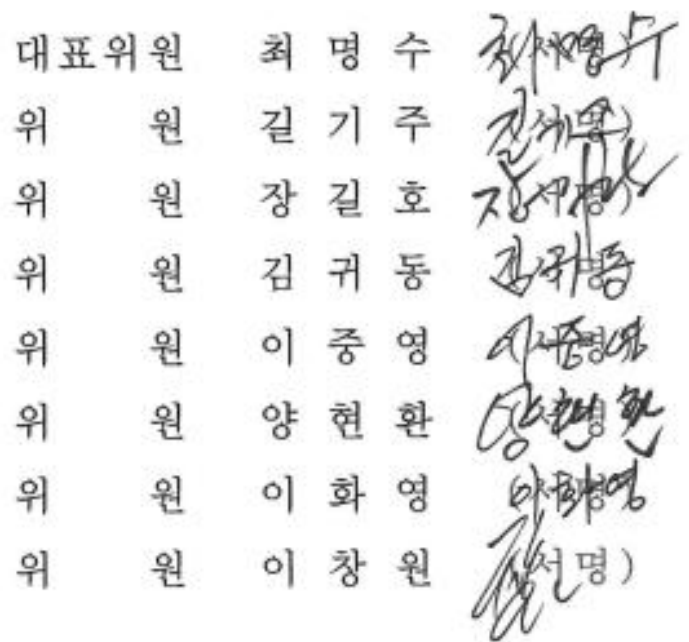 대표위원 최 명 수 (서명)
위 원 길 기 주 (서명)
위 원 장 길 호 (서명)
위 원 김 귀 동
위 원 이 중 영 (서명)
위 원 양 현 환 (서명)
위 원 이 화 영 (서명)
위 원 이 창 원 (서명)